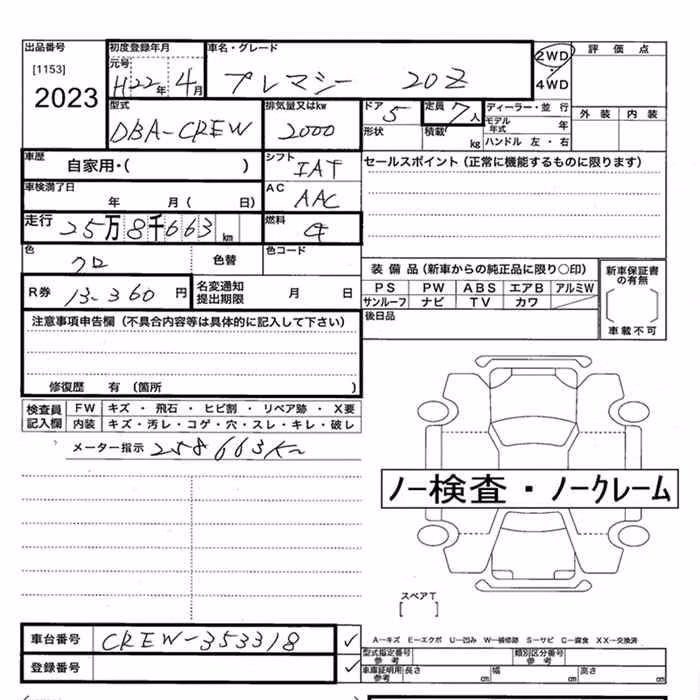 出品番号 初度登録年月 車名・グレード 2WD 評価点
[1153] 元号 プレマシー 20Z ・
2023 H22年 4月 4WD
型式 排気量又はkw ドア 5 定員 7人 ディーラー・並 行 外装 内装
DBA-CREW 2000 形状 積載 kg モデル年式 年
ハンドル 左・右
車歴 自家用・( ) シフト IAT セールスポイント(正常に機能するものに限ります)
車検満了日 年 月( 日) AC AAC
走行 25万8千663km 燃料
色 クロ 色替 色コード
装備品(新車からの純正品に限り○印) 新車保証書の有無
R券 13-360円 名変通知提出期限 月 日 PS PW ABS エアB アルミW
サンルーフ ナビ TV カワ
後日品 車載不可
注意事項申告欄(不具合内容等は具体的に記入して下さい)
修復歴 有(箇所 )
検査員記入欄 FW キズ・飛石・ヒビ割・リペア跡・X要
内装 キズ・汚レ・コゲ・穴・スレ・キレ・破レ
メーター指示 258663K
ノー検査・ノークレーム
スペアT
[ ]
車台番号 CREW-353318 ✓
登録番号 ✓
A−キズ E−エクボ U−凹み W−補修跡 S−サビ C−腐食 XX−交換済
型式指定番号 参考 類別区分番号 参考
車庫証明用 参考 長さ cm 幅 cm 高さ cm